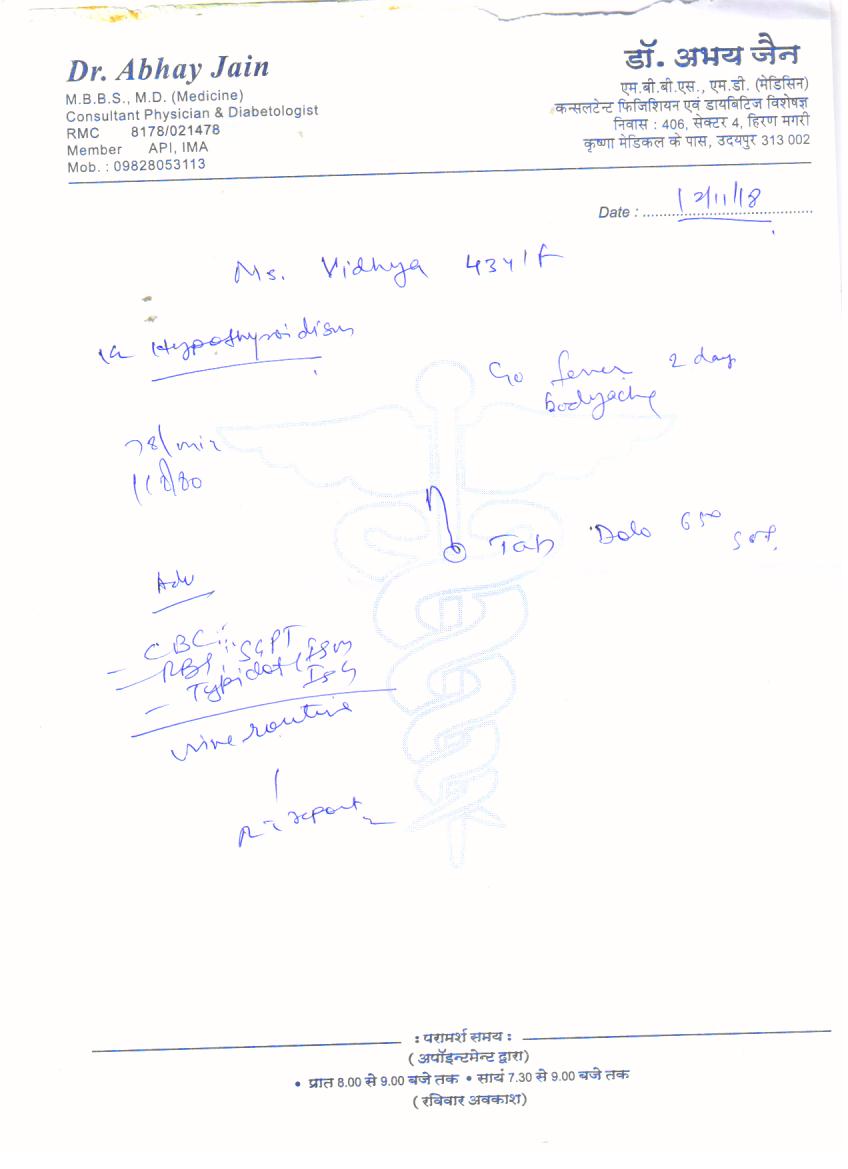 Dr. Abhay Jain
M.B.B.S., M.D. (Medicine)
Consultant Physician & Diabetologist
RMC 8178/021478
Member API, IMA
Mob. : 09828053113
डॉ. अभय जैन
एम.बी.बी.एस., एम.डी. (मेडिसिन)
कन्सलटेन्ट फिजिशियन एवं डायबिटिज विशेषज्ञ
निवास : 406, सेक्टर 4, हिरण मगरी
कृष्णा मेडिकल के पास, उदयपुर 313 002
Date : 12/11/18
Ms. Vidhya 43y/F
Hypothyroidism
C/o fever 2 day
bodyache
78/min
118/80
Tab Dolo 650 SOS
Adv
CBC, SGPT
RBS,
Typidot (IgM
IgG
urine routine
R c report
: परामर्श समय :
( अपॉइन्टमेन्ट द्वारा)
• प्रात 8.00 से 9.00 बजे तक • सायं 7.30 से 9.00 बजे तक
( रविवार अवकाश)